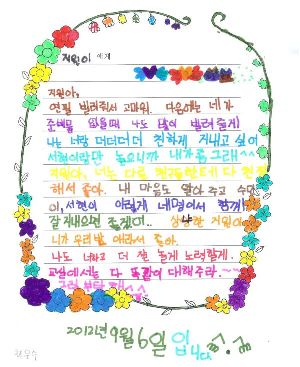 지원이 에게
지원아,
연필 빌려줘서 고마워. 다음에는 네가
준비물 없을때 나도 많이 빌려줄게)
나는 너랑 더더더더 친하게 지내고 싶어
서현이랑만 놀으니까 내가좀 그래^^
지원아, 너는 다른 친구들한테 다 친절
해서 좋아. 내 마음도 알아 주고 수민
이, 서현이 이렇게 네명이서 함께
잘지내으면 좋겠어.. 나 상상한 지원아
니가 우리반 애라서 좋아.
나도 너하고 더 잘 놀게 노력할게.
교실에서는 다 똑같이 대해주라.~~
그럼 부탁해^^
2012년 9월 6일 입니다. ^.^